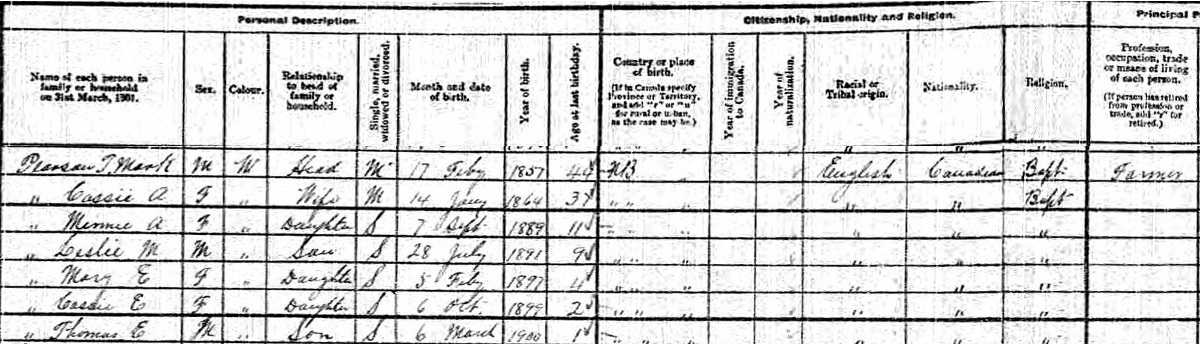 Personal Description.
Citizenship, Nationality and Religion.
Principal P
Name of each person in family or household on 31st March, 1901.
Sex.
Colour.
Relationship to head of family or household.
Single, married, widowed or divorced.
Month and date of birth.
Year of birth.
Age at last birthday.
Country or place of birth.
(If in Canada specify Province or Territory, and add "r" or "u" for rural or urban, as the case may be.)
Year of immigration to Canada.
Year of naturalization.
Racial or Tribal origin.
Nationality.
Religion.
Profession, occupation, trade or means of living of each person.
(If person has retired from profession or trade, add "r" for retired.)
Pearson T. Mark M W Head M 17 Feby 1857 44 NB English Canadian Bapt Farmer
" Cassie A F " Wife M 14 Jany 1864 37 " " " " " Bapt
" Minnie A F " Daughter S 7 Sept 1889 11 " " " " "
" Leslie M M " Son S 28 July 1891 9 " " " " "
" Mary E F " Daughter S 5 Feby 1897 4 " " " " "
" Cassie E F " Daughter S 6 Oct. 1899 2 " " " " "
" Thomas E M " Son S 6 March 1900 1 " " " " " "